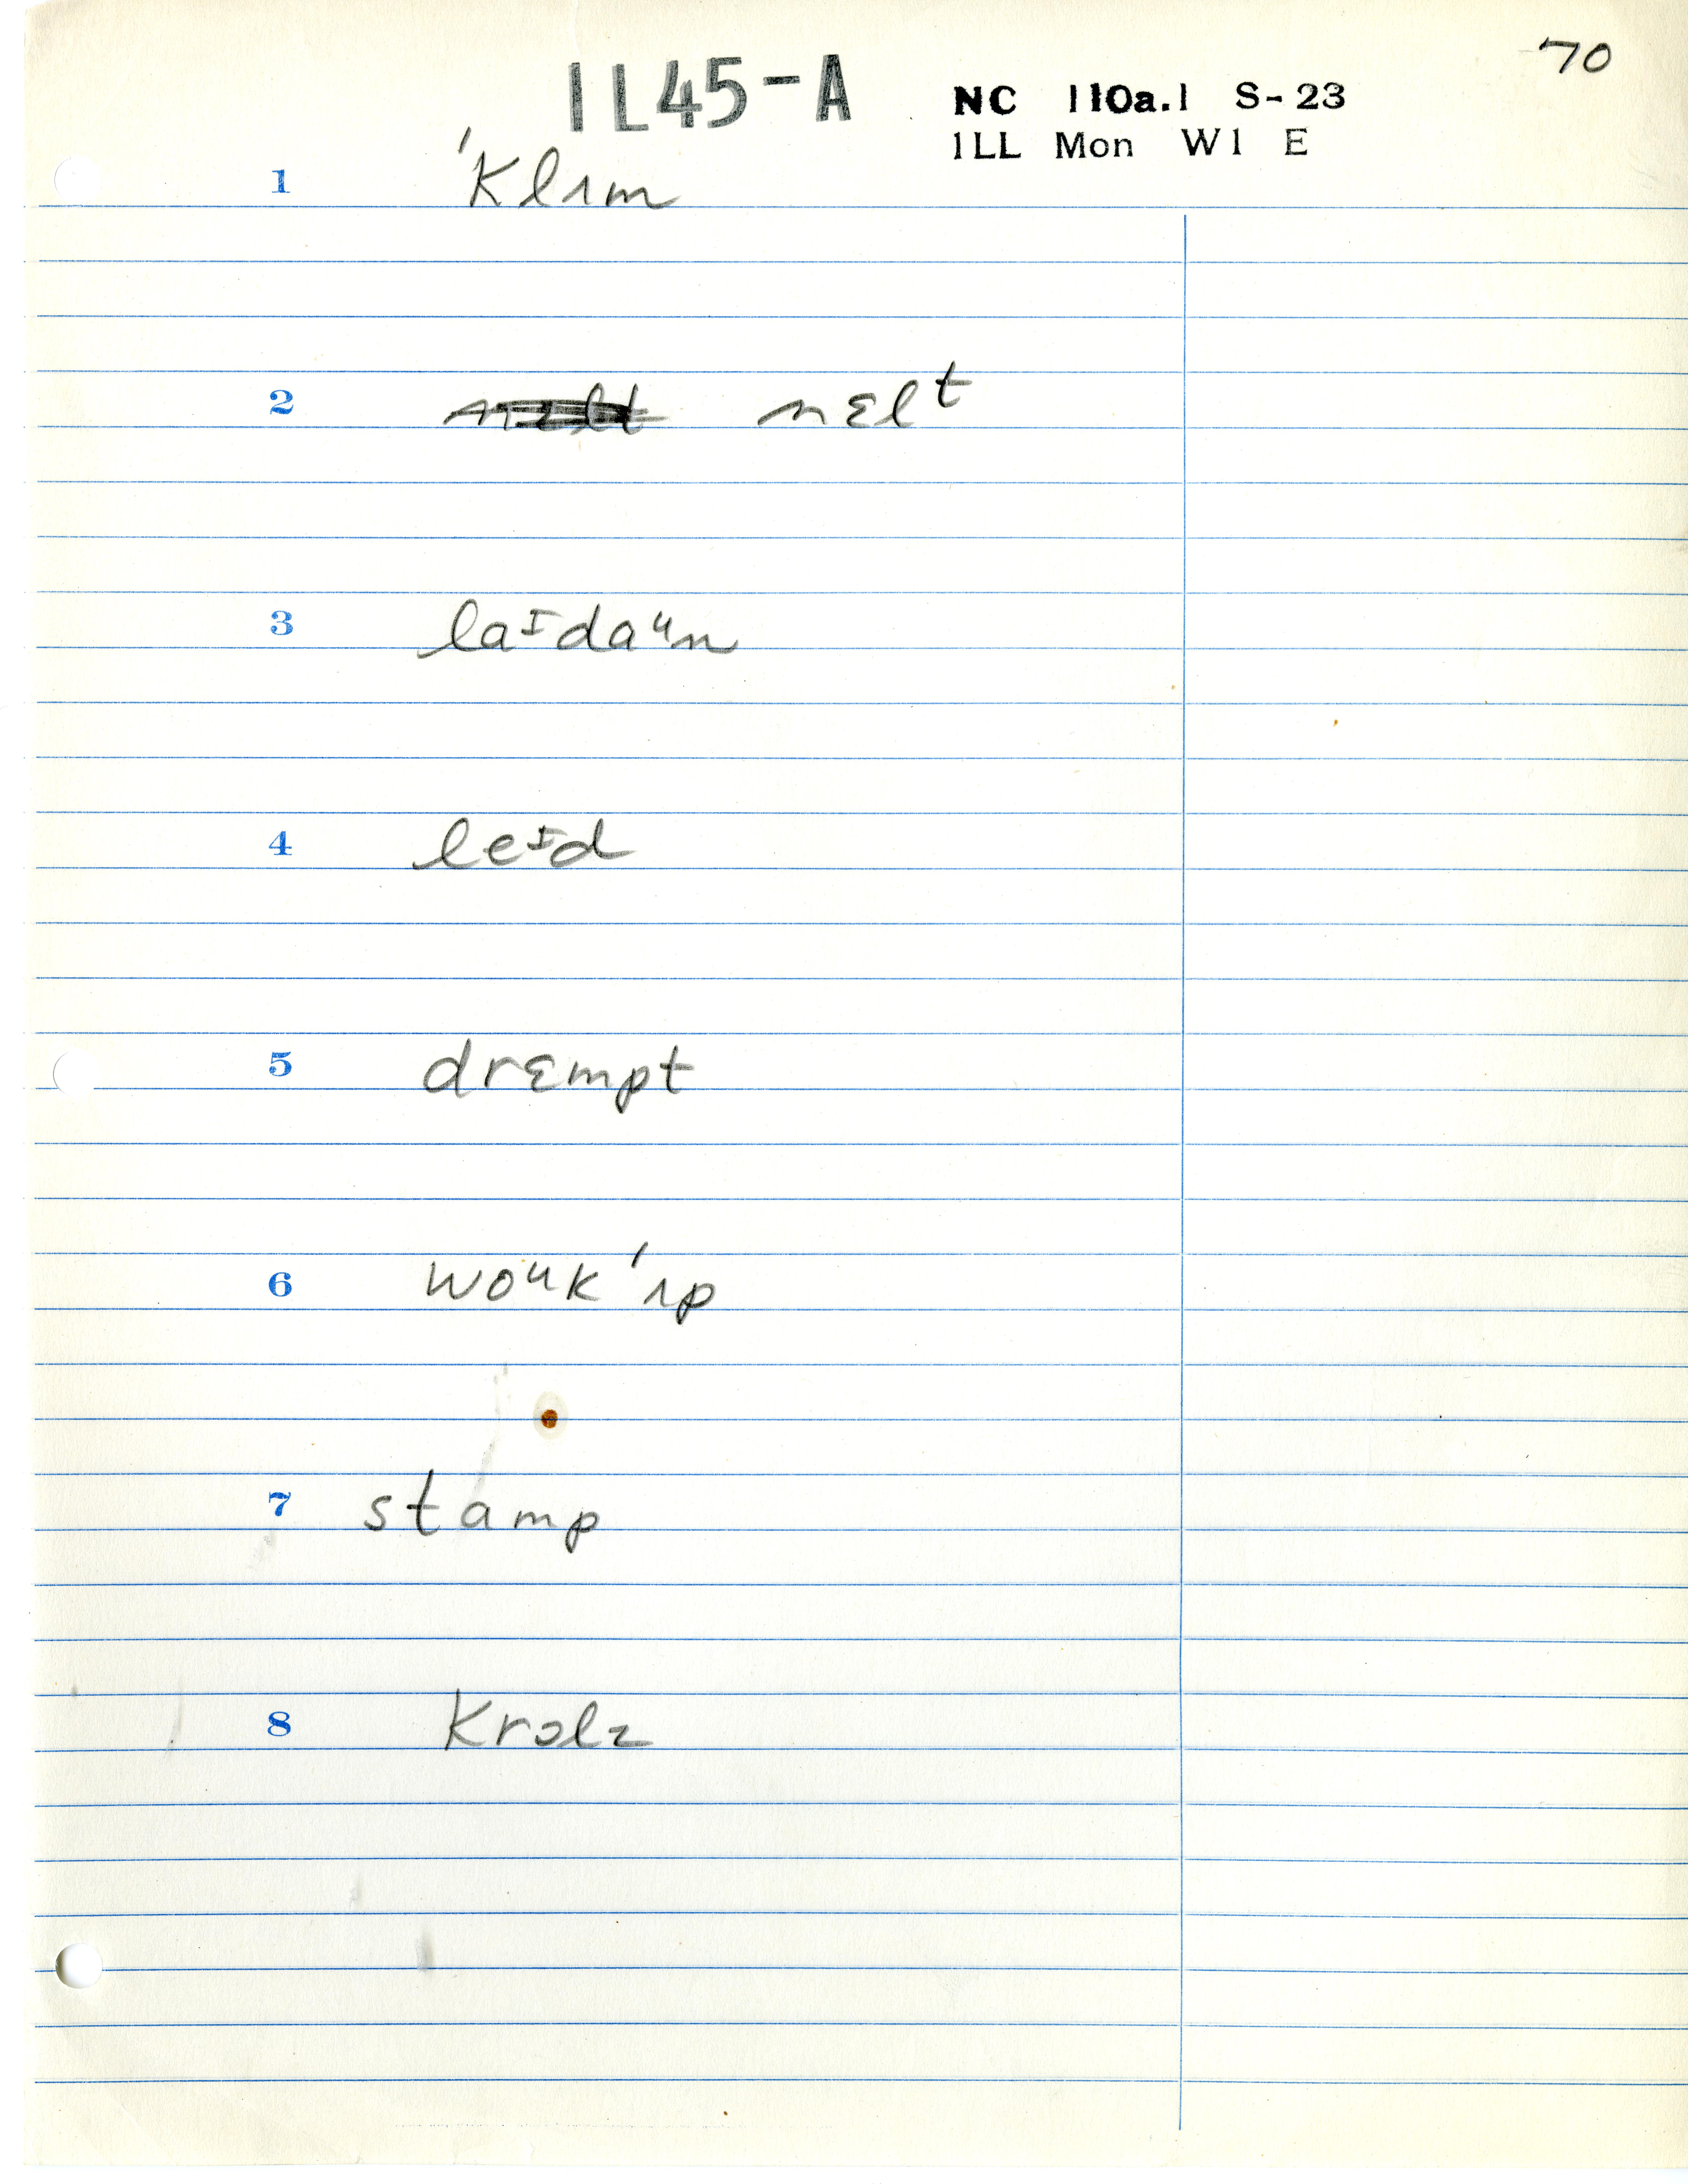 70
IL45-A
NC 110a.1 S-23
ILL Mon W1 E
1 ˈKlɪm
2 nɛlᵗ
3 laᶦdaᵘn
4 leᶦd
5 drɛmpt
6 woᵘkˈɪp
7 stamp
8 Krɔlz